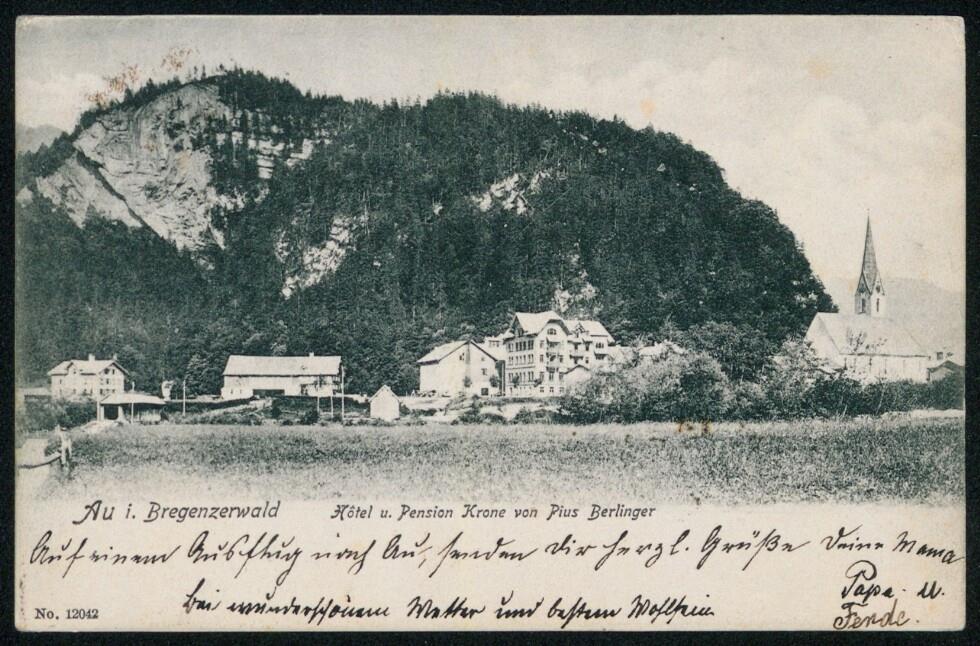 Au i. Bregenzerwald
Hôtel u. Pension Krone von Pius Berlinger
Auf einem Ausflug nach Au, senden Dir herzl. Grüße Deine Mama
Papa. u.
Ferde.
bei wunderschönem Wetter und bestem Wohlsein
No. 12042